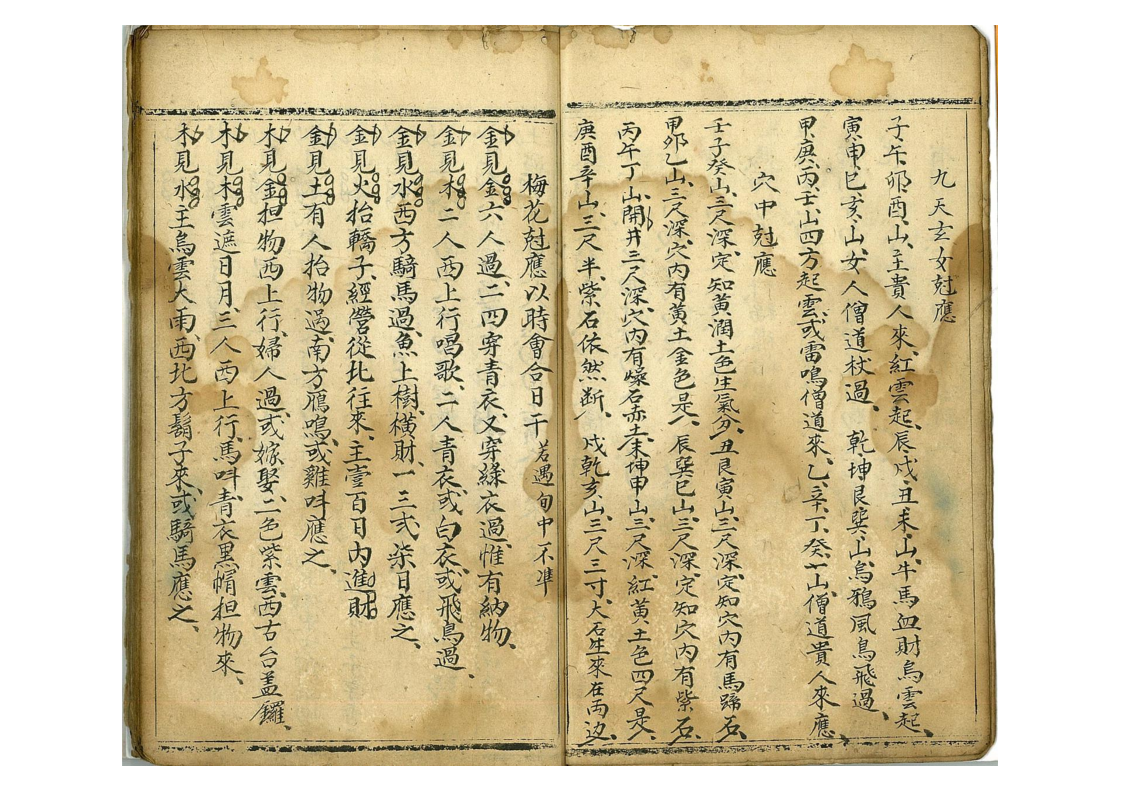 九天玄女尅應
子午卯酉山、主貴人來、紅雲起、辰戌丑未山、牛馬血財烏雲起、
寅申巳亥山、女人僧道杖過、乾坤艮巽山、烏鴉風鳥飛過、
甲庚丙壬山四方起雲、或雷鳴僧道來、乙辛丁癸山、僧道貴人來應、
穴中尅應
壬子癸山、三尺深、定知黃潤土色生氣分、丑艮寅山、三尺深、定知穴內有馬蹄石、
甲卯乙山、三尺深、穴內有黃土金色是、辰巽巳山、三尺深、定知穴內有紫石、
丙午丁山、開井三尺深、穴內有燥石赤土、未坤申山、三尺深、紅黃土色四尺是、
庚酉辛山、三尺半、紫石依然断、戌乾亥山、三尺三寸、大石生來在両边、
梅花尅應以時會合日干若遇旬中不準
金見金、六人過、二四穿青衣、又穿綠衣過、惟有納物、
金見木、二人西上行唱歌、二人青衣或白衣、或飛鳥過、
金見水、西方騎馬過、魚上樹、橫財、一三弍柒日應之、
金見火、抬轎子、經營從北往來、主壹百日內進財
金見土、有人抬物過、南方鴈鳴、或雞呌應之、
木見金、担物西上行、婦人過、或嫁娶二色紫雲、西古台盖鑼、
木見木、雲遮日月、三人西上行、馬呌、青衣黑帽担物來、
木見水、主烏雲大雨、西北方鬍子來、或騎馬應之、